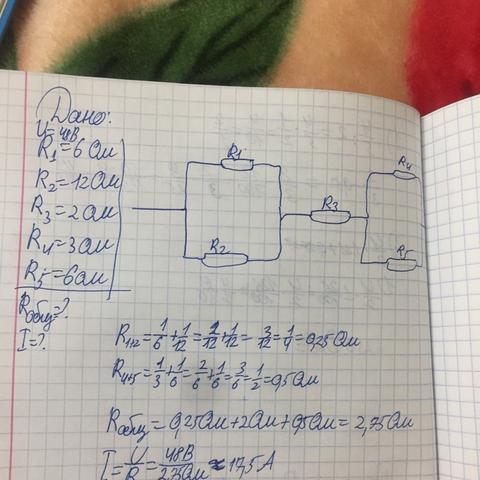 Дано:
U=48В
R1=6 Ом
R2=12 Ом
R3=2 Ом
R4=3 Ом
R5=6 Ом
Rобщ=?
I=?
R1
R2
R3
R4
R5
R1+2=1/6+1/12=2/12+1/12=3/12=1/4=0,25 Ом
R4+5=1/3+1/6=2/6+1/6=3/6=1/2=0,5 Ом
Rобщ=0,25 Ом+2 Ом+0,5 Ом=2,75 Ом
I=U/R=48В/2,75 Ом≈17,5 А